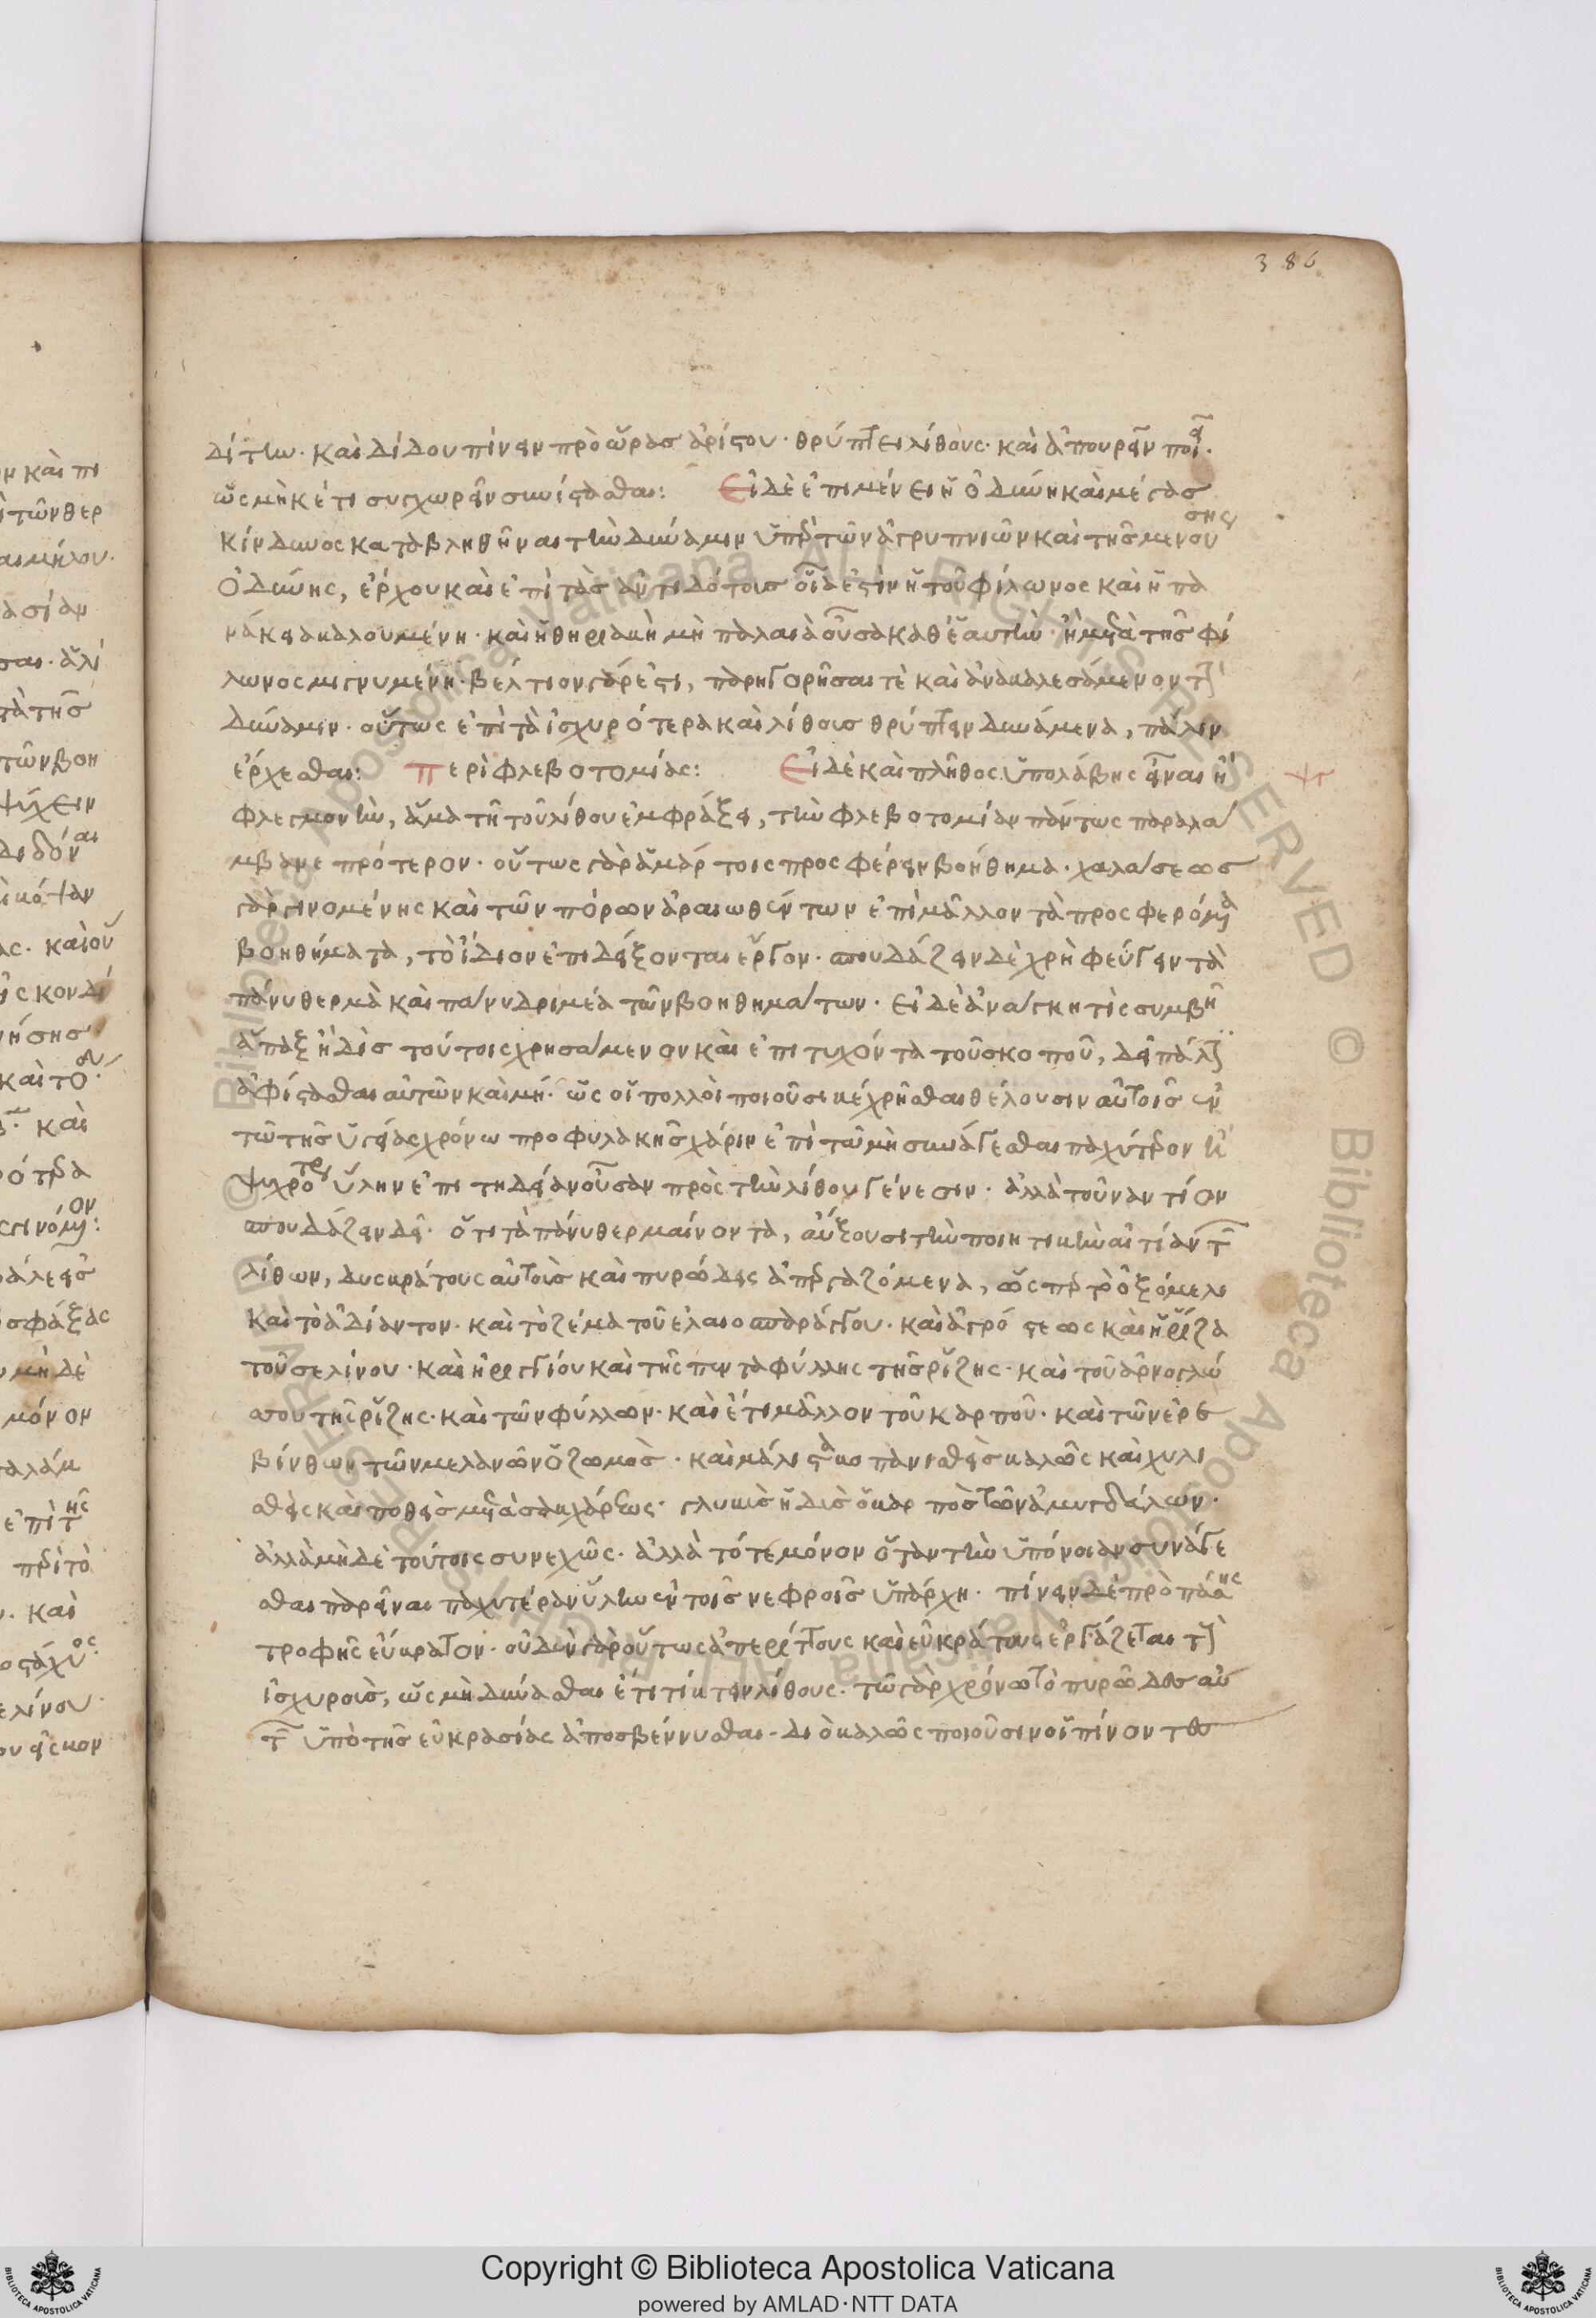 386
δίτην· καὶ δίδου πίνειν πρὸ ὥρας ἀρίστου· θρύπτει λίθους· καὶ ἀπουρεῖν ποιεῖ·
ὡς μηκέτι συγχωρεῖν συνίστασθαι: Εἰ δὲ ἐπιμένει ἡ ὀδύνη καὶ μέγας
κίνδυνος καταβληθῆναι τὴν δύναμιν ὑπὸ τῶν ἀγρυπνιῶν καὶ τῆς μενούσης
ὀδύνης, ἔρχου καὶ ἐπὶ τὰς ἀντιδότους οἷα ἐστὶν ἡ τοῦ φίλωνος καὶ ἡ πα
νάκεια καλουμένη· καὶ ἡ θηριακὴ μὴ παλαιὰ οὖσα καθ ἑαυτὴν· ἢ μετὰ τῆς φί
λωνος μιγνυμένη· βέλτιον γάρ ἐστι, παρηγορῆσαι τὲ καὶ ἀνακαλεσάμενον τὴν
δύναμιν· οὕτως ἐπὶ τὰ ἰσχυρότερα καὶ λίθους θρύπτειν δυνάμενα, πάλιν
ἔρχεσθαι: Περὶ φλεβοτομίας: Εἰ δὲ καὶ πλῆθος ὑπολάβης εἶναι ἢ
φλεγμονὴν, ἅμα τῆ τοῦ λίθου ἐμφράξει, τὴν φλεβοτομίαν πάντως παραλα
μβανε πρότερον· οὕτως γὰρ ἅμα τοῖς προσφέρειν βοήθημα· χαλάσεως
γὰρ γινομένης καὶ τῶν πόρων ἀραιωθέντων ἐπὶ μᾶλλον τὰ προσφερόμενα
βοηθήματα, τὸ ἴδιον ἐπιδείξονται ἔργον· σπουδάζειν δὲ χρὴ φεύγειν τὰ
πάνυ θερμὰ καὶ πάνυ δριμέα τῶν βοηθημάτων· εἰ δὲ ἀνάγκη τίς συμβῆ
ἅπαξ ἢ δὶς τούτοις χρησάμενον καὶ ἐπιτυχόντα τοῦ σκοποῦ, δεῖ πάλιν
ἀφίστασθαι αὐτῶν καὶ μή· ὡς οἱ πολλοὶ ποιοῦσι κέχρῆσθαι θέλουσιν αὐτοῖς ἐν
τῶ τῆς ὑγείας χρόνω προφυλακῆς χάριν ἐπὶ τῶ μὴ συνάγεσθαι παχύτερον καὶ
ψυχροτέραν ὕλην ἐπιτηδείαν οὖσαν πρὸς τὴν λίθου γένεσιν· ἀλλὰ τοὐναντίον
σπουδάζειν δεῖ· ὅτι τὰ πάνυ θερμαίνοντα, αὔξουσι τὴν ποιητικὴν αἰτίαν τῶν
λίθων, δυσκράτους αὐτοὺς καὶ πυρώδεις ἀπεργαζόμενα, ὥσπερ τὸ ὀξόμελι
καὶ τὸ ἀδίαντον· καὶ τὸ ζέμα τοῦ ἐλαιοσπαράγγου· καὶ ἀγρώστεως καὶ ἡ ῥίζα
τοῦ σελίνου· καὶ ἠρυγγίου καὶ τῆς πενταφύλλης τῆς ῥίζης· καὶ τοῦ ἀρνογλώ
σσου τῆς ῥίζης· καὶ τῶν φύλλων· καὶ ἔτι μᾶλλον τοῦ καρποῦ· καὶ τῶν ἐρε
βίνθων τῶν μελανῶν ὁ ζωμὸς· καὶ μάλιστα κοπανισθεὶς καλῶς καὶ χυλι
σθεὶς καὶ ποθεὶς μετὰ σακχάρεως· γλυκὺς ἡδὺς ὁ καρπὸς τῶν ἀμυγδάλων·
ἀλλὰ μηδὲ τούτοις συνεχῶς· ἀλλὰ τότε μόνον ὅταν τὴν ὑπόνοιαν συνάγε
σθαι παρεῖναι παχυτέραν ὕλην ἐν τοῖς νεφροῖς ὑπάρχη· πίνειν δὲ πρὸ πάσης
τροφῆς εὔκρατον· οὐδὲν γὰρ οὕτως ἀπερίττους καὶ εὐκράτους ἐργάζεται τοὺς
ἰσχυροὺς, ὡς μὴ δύνασθαι ἔτι τίκτειν λίθους· τῶ γὰρ χρόνω τὸ πυρῶδες αὐ
τῶν ὑπὸ τῆς εὐκρασίας ἀποσβέννυσθαι· διὸ καλῶς ποιοῦσιν οἱ πίνοντες